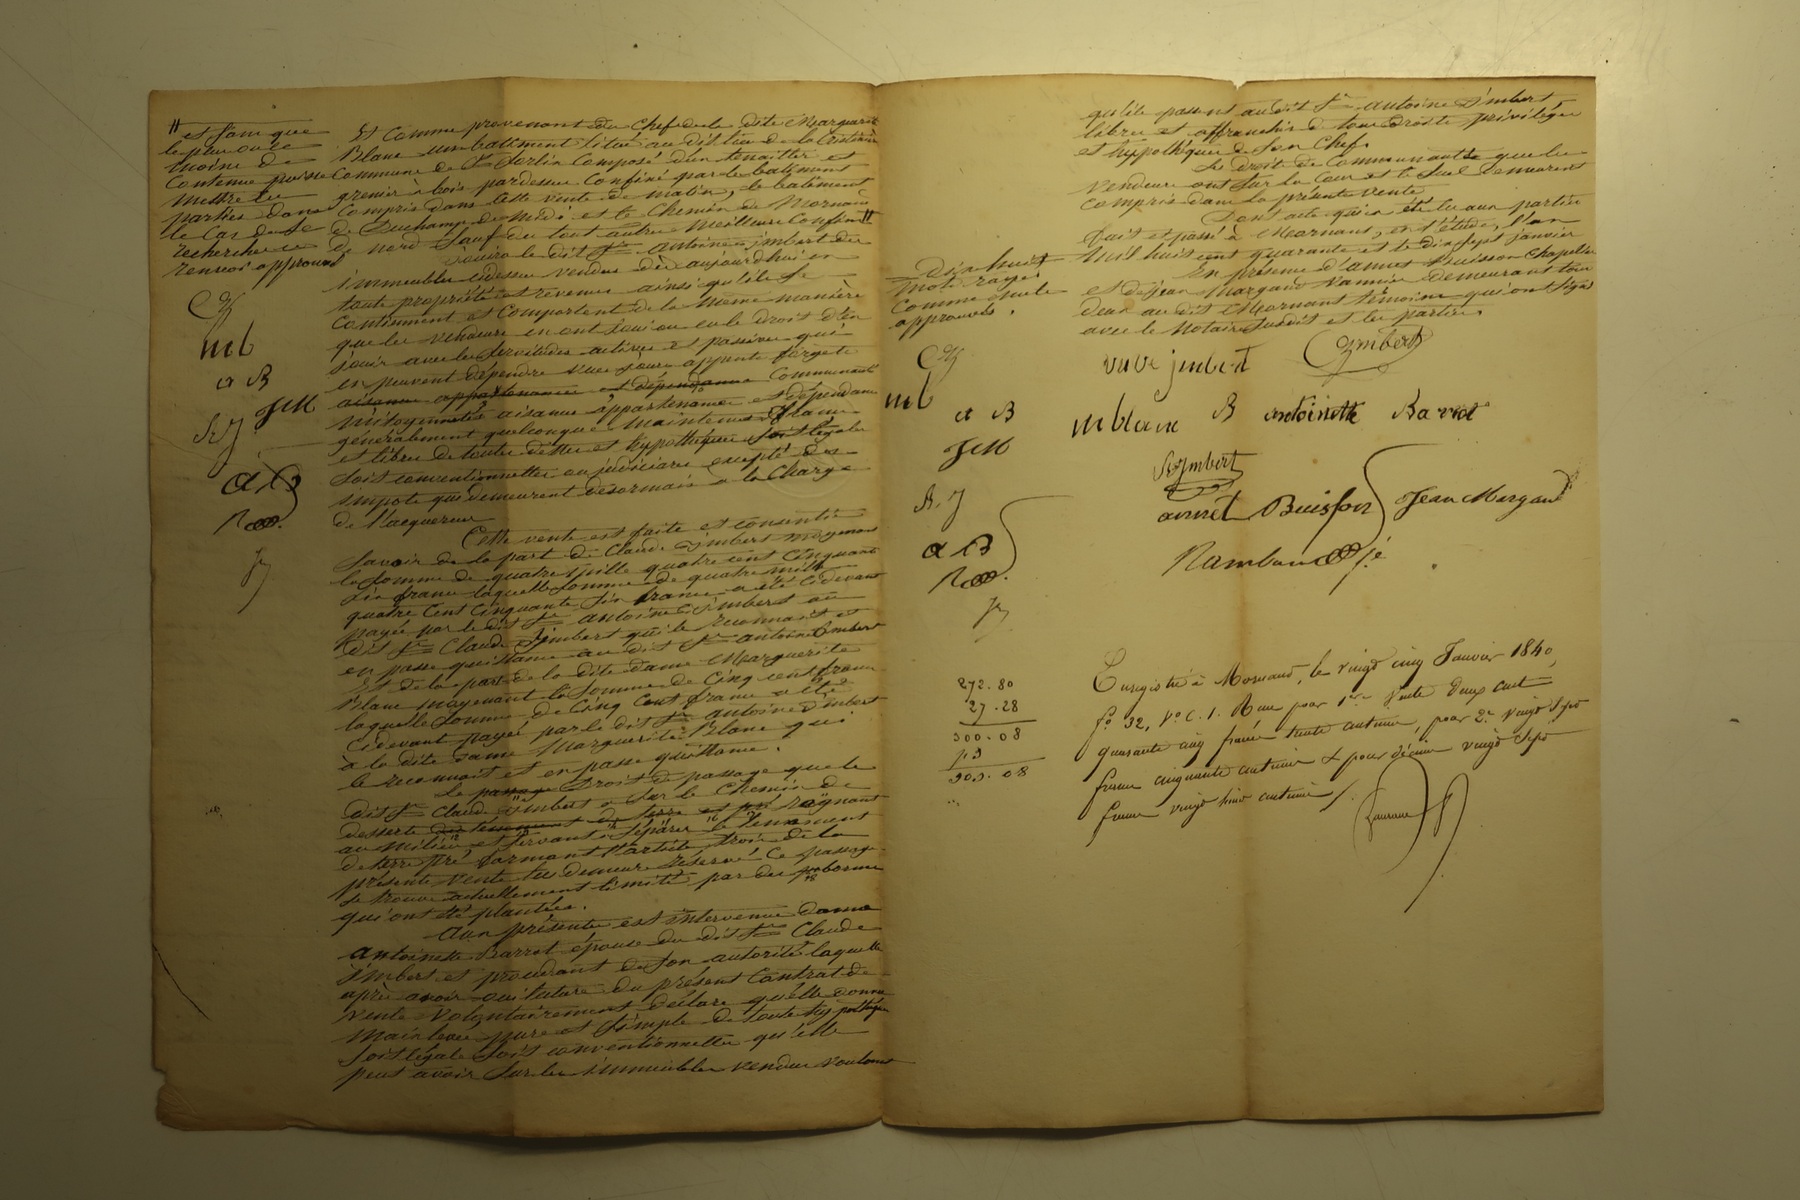 et sans que
le plus ou le
moins de
contenue puisse
mettre les
parties dans
le cas de se
rechercher ce
renvoi approuvé
CJ
mb
a B
JM
St J
a B
R
Et comme provenant du chef de la dite Marguerite
Blanc un batiment situé au dit lieu de la
Commune de St Sorlin composé d'un tenailler et
grenier à bois pardessus confiné par le batiment
compris dans cette vente de matin, le batiment
de Duchamp de midi et le Chemin de Mornant
de nord sauf du tout autres meilleurs confins
jouira le dit Sr antoine jmbert des
immeubles cidessus vendus dès aujourdhui en
toute propriété et revenus ainsi qu'ils se
contiennent et comportent de la même manière
que les vendeurs en ont joui ou eu le droit d'en
jouir avec les servitudes actives et passives qui
en peuvent dépendre vues jours
aisances appartenances et dépendances communauté
mitoyennetés aisances appartenances et dépendances
généralement quelconques maintenus francs
et libres de toutes dettes et hypothèques soit légales
soit conventionnelles ou judiciaires excepté des
impots qui demeurent désormais à la charge
de l'acquereur
Cette vente est faite et consentie
Savoir de la part de Claude jmbert moyennant
la somme de quatre mille quatre cent cinquante
six francs laquelle somme de quatre mille
quatre cent cinquante six francs a été cidevant
payée par le dit Sr antoine jmbert au
dit Sr Claude jmbert qui le reconnait et
en passe quittance au dit Sr antoine jmbert
Et de la part de la dite dame Marguerite
Blanc moyennant la somme de cinq cent francs
laquelle somme de cinq cent francs a été
cidevant payée par le dit Sr antoine jmbert
à la dite dame Marguerite Blanc qui
le reconnait et en passe quittance.
Le passage Droit de passage que le
dit Sr Claude jmbert a sur le chemin de
desserte des tenement de terre et pré régnant
au milieu et servant à séparer le tennement
de terre pré formant l'article trois de la
présente vente lui demeure réservé ce passage
se trouve actuellement limité par des bornes
qui ont été plantées.
Aux présentes est intervenue dame
antoinette Barrot épouse du dit Sr Claude
jmbert et procédant de son autorité laquelle
après avoir oui lecture du présent contrat de
vente volontairement déclare qu'elle donne
main levée pure et simple de toute hypothèque
soit légale soit conventionnelle qu'elle
peut avoir sur les immeubles vendus voulant
qu'ils passent au dit Sr antoine jmbert
libres et affranchis de tous droits privilégiés
et hypothèques de son chef.
Le droit de communauté que les
vendeurs ont sur la cour et le sol demeurent
compris dans la présente vente
Dont acte qui a été lu aux parties
fait et passé à Mornant, en l'étude, l'an
mil huit cent quarante et le dix sept janvier
En présence d'annet Buisson chapelier
et de jean Margaud vannier demeurant tous
deux au dit Mornant témoins qui ont signé
avec le Notaire susdit et les parties.
Dix huit
mots rayés
comme nuls
approuvés.
CJ
mb
a B
JM
St. J
a B
R
veuve jmbert
Cjmbert
mblanc B antoinette Barrot
St jmbert
annet Buisson Jean Margaud
272.80
27.28
300.08
903.08
Enregistré à Mornant, le vingt cinq Janvier 1840,
fo 32, Vo c. 1. Reçu pour 1re vente deux cent
quarante cinq francs trente centimes, pour 2e vingt sept
francs cinquante centimes & pour décime vingt sept
francs vingt huit centimes